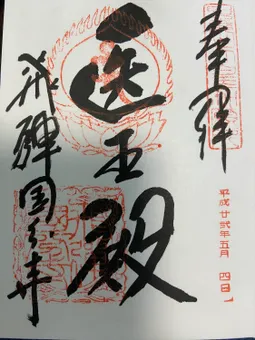 奉拝
平成廿弐年五月四日
医王殿
飛騨国分寺